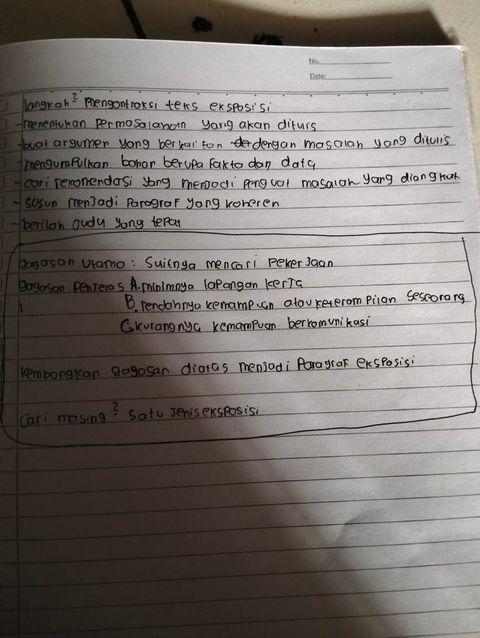 No.
Date:
langkah² mengontroksi teks eksposisi
- menentukan permasalahan yang akan ditulis
- buat argumen yang berkaitan dengan masalah yang ditulis
- mengumpulkan bahan berupa fakta dan data
- cari rekomendasi yang menjadi penguat masalah yang diangkat
- susun menjadi paragraf yang koheren
- berilah judul yang tepat
gagasan utama : sulitnya mencari pekerjaan
gagasan penjelas A. minimnya lapangan kerja
B. rendahnya kemampuan atau keterampilan seseorang
C. kurangnya kemampuan berkomunikasi
kembangkan gagasan diatas menjadi paragraf eksposisi
cari masing² satu jenis eksposisi